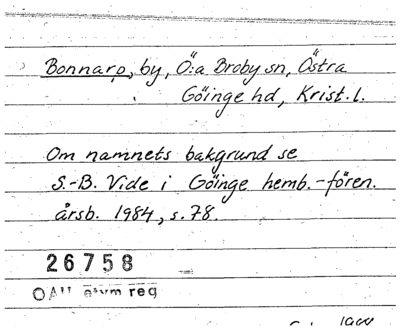 Bonnarp, by, Ö:a Broby sn, Östra
Göinge hd, Krist. l.
Om namnets bakgrund se
S.-B. Vide i Göinge hemb.-fören.
årsb. 1984, s. 78.
26758
OAU reg